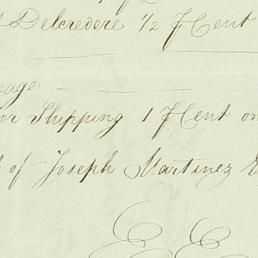 Delcredere 1/2 ⅌Cent
or Shipping 1 ⅌Cent on
of Joseph Martinez
E E